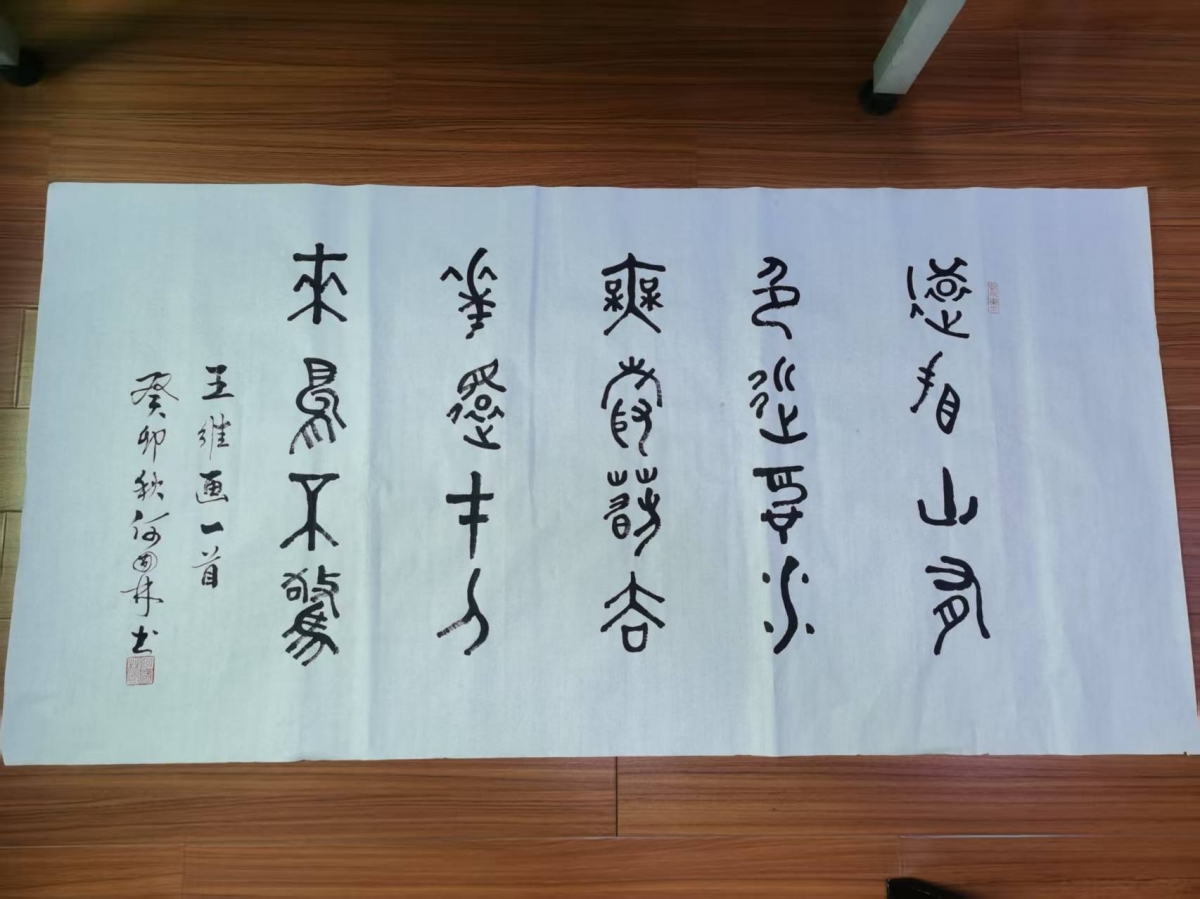 遠看山有
色近聽水
無聲春去
華還在人
來鳥不驚
王維画一首
癸卯秋何国林书